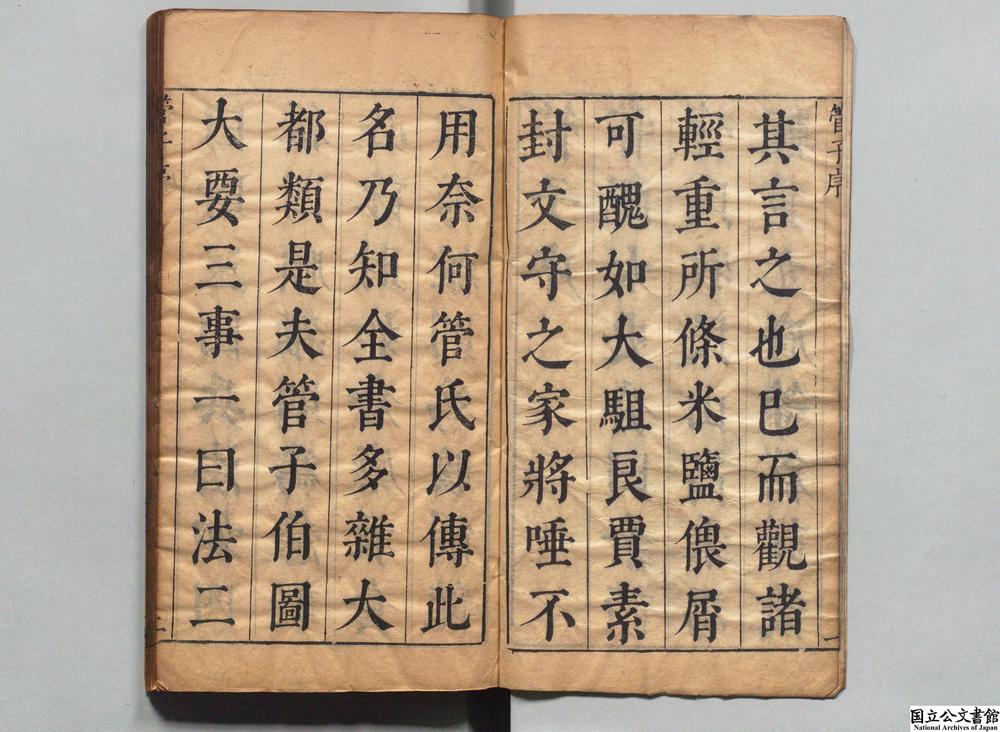 管子序
其言之也已而觀諸
輕重所條米鹽偎屑
可醜如大駔良賈素
封文守之家將唾不
一
用奈何管氏以傳此
名乃知全書多雜大
都類是夫管子伯圖
大要三事一曰法二
管子序
二
国立公文書館
National Archives of Japan